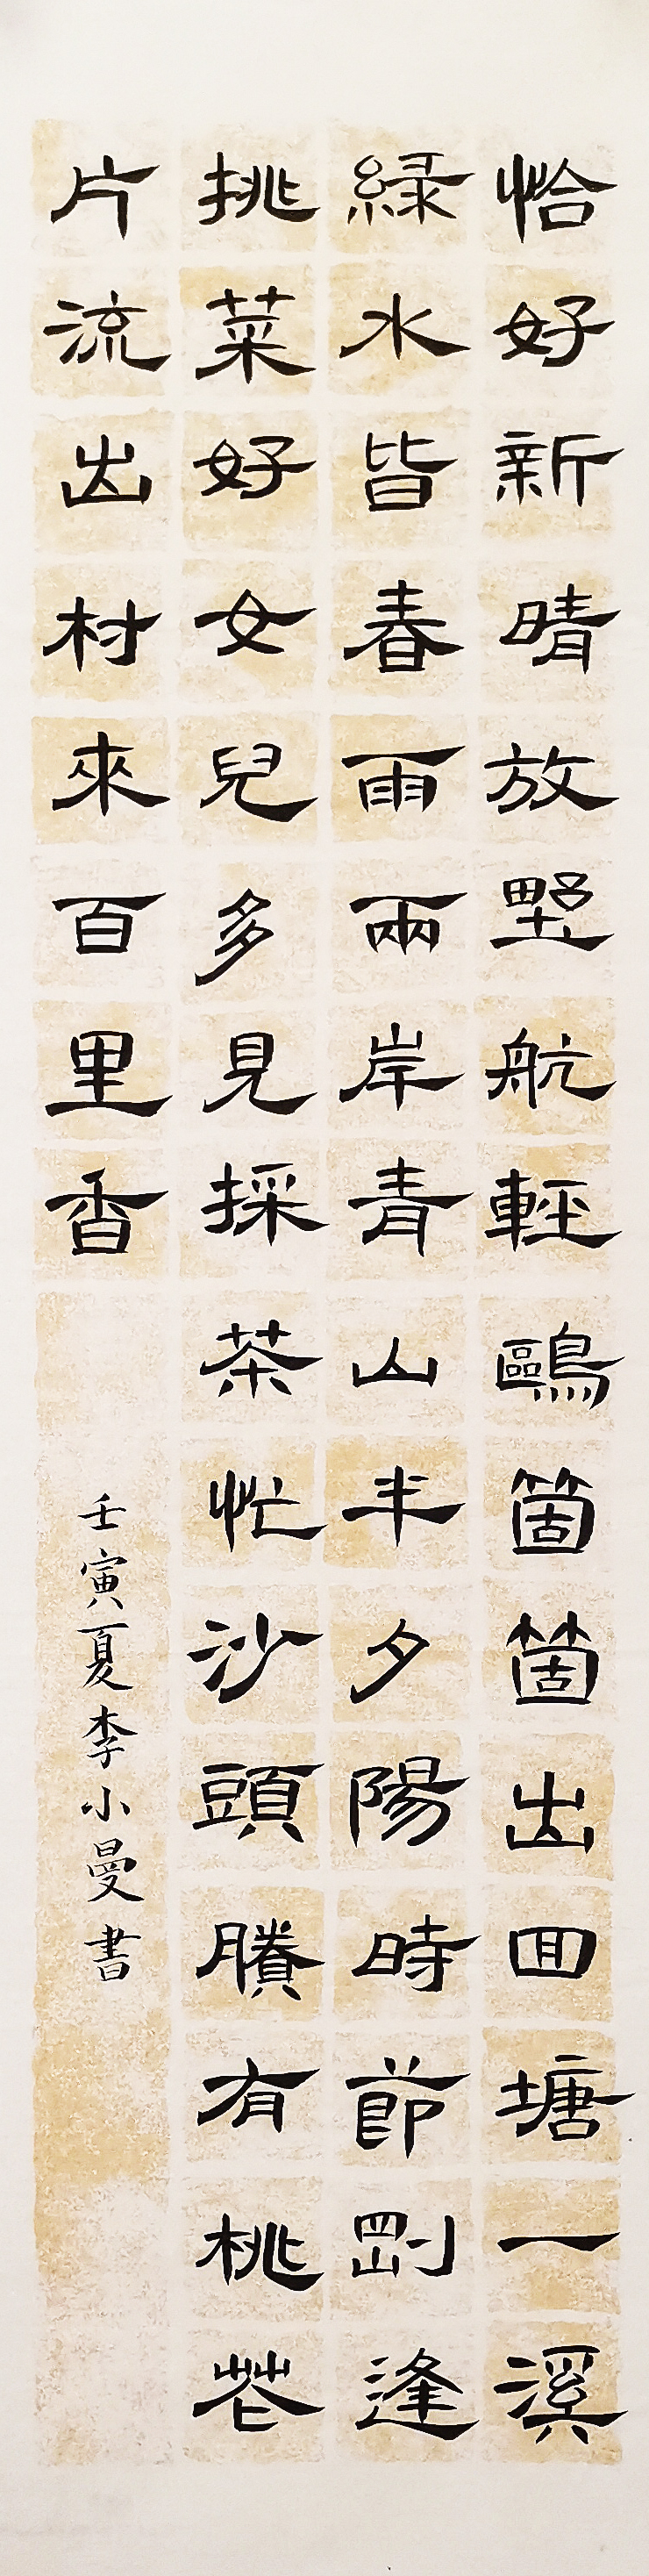 恰好新晴放野航輕鷗箇箇出回塘一溪
緑水皆春雨兩岸青山半夕陽時節剛逢
挑菜好女兒多見採茶忙沙頭賸有桃花
片流出村來百里香
壬寅夏李小曼書